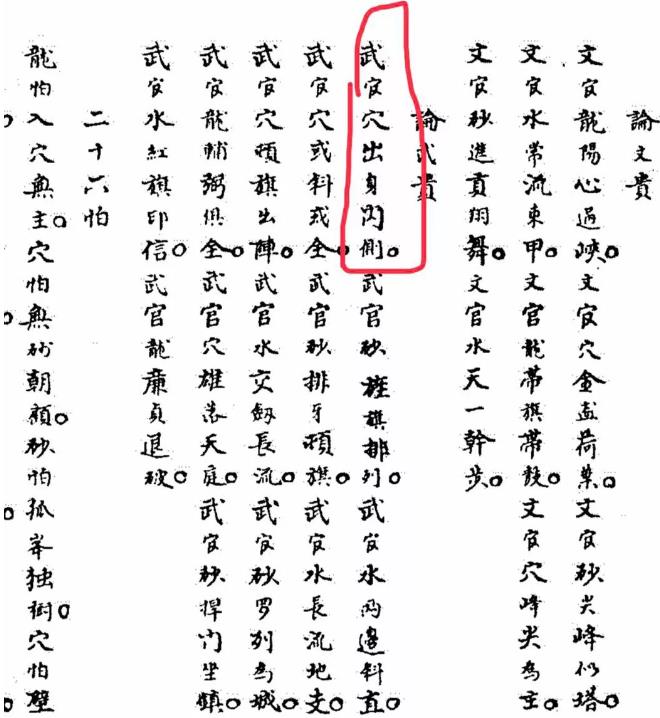 論文貴
文官龍陽心過峽。文官穴金盞荷葉。文官砂尖峰似塔。
文官水常流東甲。文官龍帶旗帶鼓。文官穴峰尖為主。
文官砂進貢翔舞。文官水天一幹步。
論武貴
武官穴出身閃側。武官砂旌旗排列。武官水両邊斜直。
武官穴或斜或全。武官砂排牙頓旗。武官水長流地支。
武官穴頓旗出陣。武官水交劔長流。武官砂罗列為城。
武官龍輔弼俱全。武官穴雄落天庭。武官砂捍门坐鎮。
武官水紅旗印信。武官龍廉貞退破。
二十六怕
龍怕入穴無主。穴怕無砂朝顧。砂怕孤峯独樹。穴怕壁